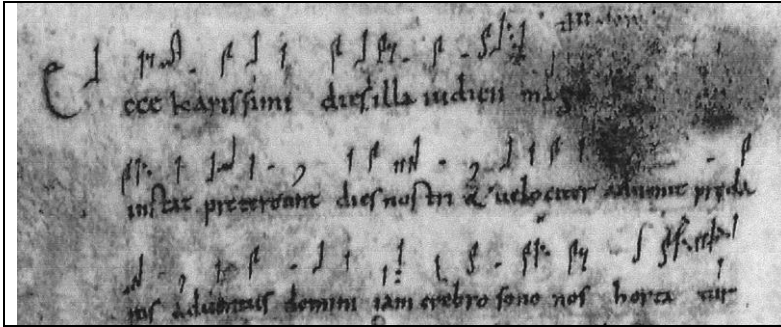 Ecce karissimi dies illa iudicii mag
instat pretereunt dies nostri & uelociter aduenit pręcla
rus aduentus domini iam crebro sono nos horta tur